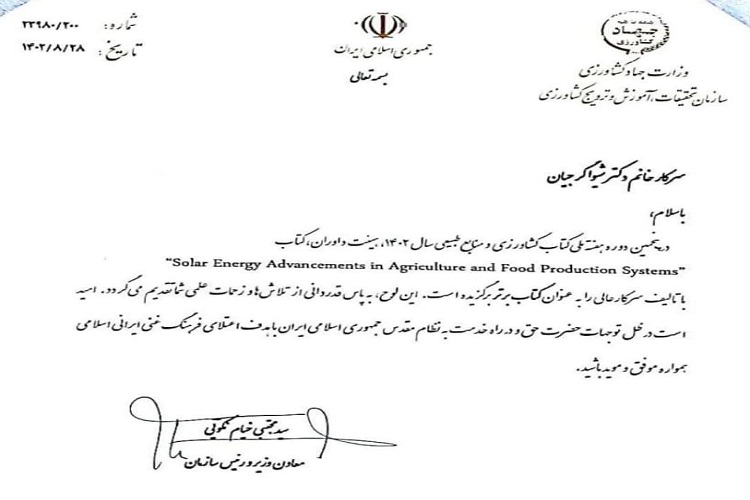 شماره: ۲۳۹۸۰/۲۰۰
تاریخ: ۱۴۰۲/۸/۲۸
جمهوری اسلامی ایران
بسمه تعالی
جهاد
کشاورزی
وزارت جهاد کشاورزی
سازمان تحقیقات، آموزش و ترویج کشاورزی
سرکار خانم دکتر شیوا گرجیان
باسلام،
در پنجمین دوره هفته ملی کتاب کشاورزی و منابع طبیعی سال ۱۴۰۲، هیئت داوران، کتاب
"Solar Energy Advancements in Agriculture and Food Production Systems"
با تالیف سرکارعالی را به عنوان کتاب برتر برگزیده است. این لوح، به پاس قدردانی از تلاش‌ها و زحمات علمی شما تقدیم می‌گردد. امید
است در ظل توجهات حضرت حق و در راه خدمت به نظام مقدس جمهوری اسلامی ایران با هدف اعتلای فرهنگ غنی ایرانی اسلامی
همواره موفق و موید باشید.
سید مجتبی خیام نکوئی
معاون وزیر و رئیس سازمان